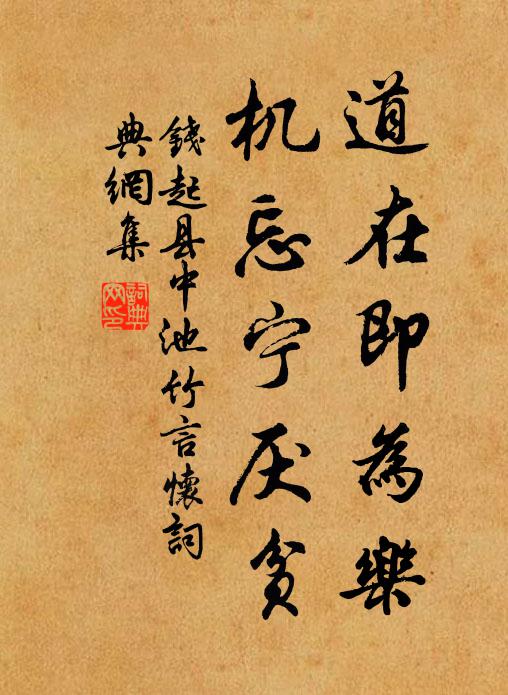 道在即為樂
机忘宁厌貧
錢起县中池竹言懷詞
典網集
詞典
网印